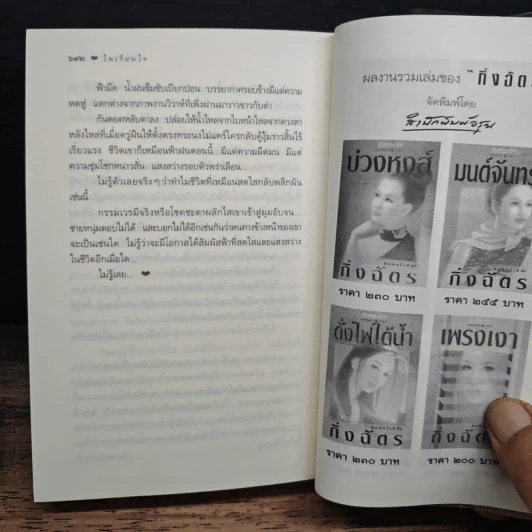 ๖๙๒ ❤ ในเรือนใจ
ฟ้ามืด น้ำฝนซึมซับเปียกปอน บรรยากาศรอบข้างมีแต่ความ
หดหู่ แตกต่างจากภาพงานวิวาห์ที่เพิ่งผ่านมาราวขาวกับดำ
กันตยศหลับตาลง ปล่อยให้น้ำไหลจากใบหน้าไหลจากดวงตา
หลั่งไหลที่เมื่อครู่ฝืนให้ตั้งตรงทระนงไม่แคร์ใครกลับคู้งุ้มราวสิ้นไร้
เรี่ยวแรง ชีวิตเขาก็เหมือนฟ้าฝนตอนนี้... มีแต่ความมืดมน มีแต่
ความชุ่มโชกหนาวสั่น แสงสว่างรอบตัวพร่าเลือน...
ไม่รู้ตัวเลยจริงๆ ว่าทำไมชีวิตที่เหมือนสดใสกลับพลิกผัน
เช่นนี้
กรรมเวรมีจริงหรือโชคชะตาผลักไสเขาเข้าสู่มุมอับจน...
ชายหนุ่มตอบไม่ได้ และบอกไม่ได้อีกเช่นกันว่าหนทางข้างหน้าของเขา
จะเป็นเช่นใด ไม่รู้ว่าจะมีโอกาสได้สัมผัสฟ้าที่สดใสและแสงสว่าง
ในชีวิตอีกเมื่อใด...
ไม่รู้เลย... ❤
ผลงานรวมเล่มของ "กิ่งฉัตร
จัดพิมพ์โดย
สำนักพิมพ์อรุณ
บ่วงหงส์
กิ่งฉัตร
ราคา ๒๓๐ บาท
มนต์จันทร
กิ่งฉัตร
ราคา ๒๔๕ บาท
ดั่งไฟใต้น้ำ
กิ่งฉัตร
ราคา ๒๓๐ บาท
เพรงเงา
กิ่งฉัตร
ราคา ๒๐๐ บาท